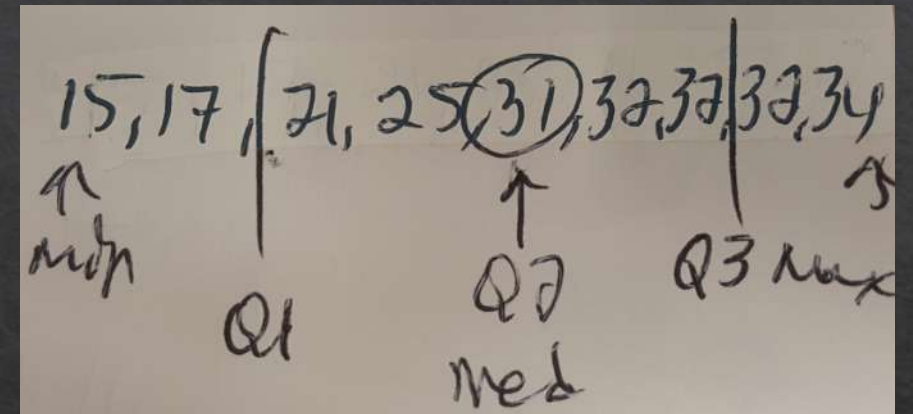 15, 17, 21, 25, 31, 32, 32, 32, 34
min
Q1
Q2
Med
Q3 Max